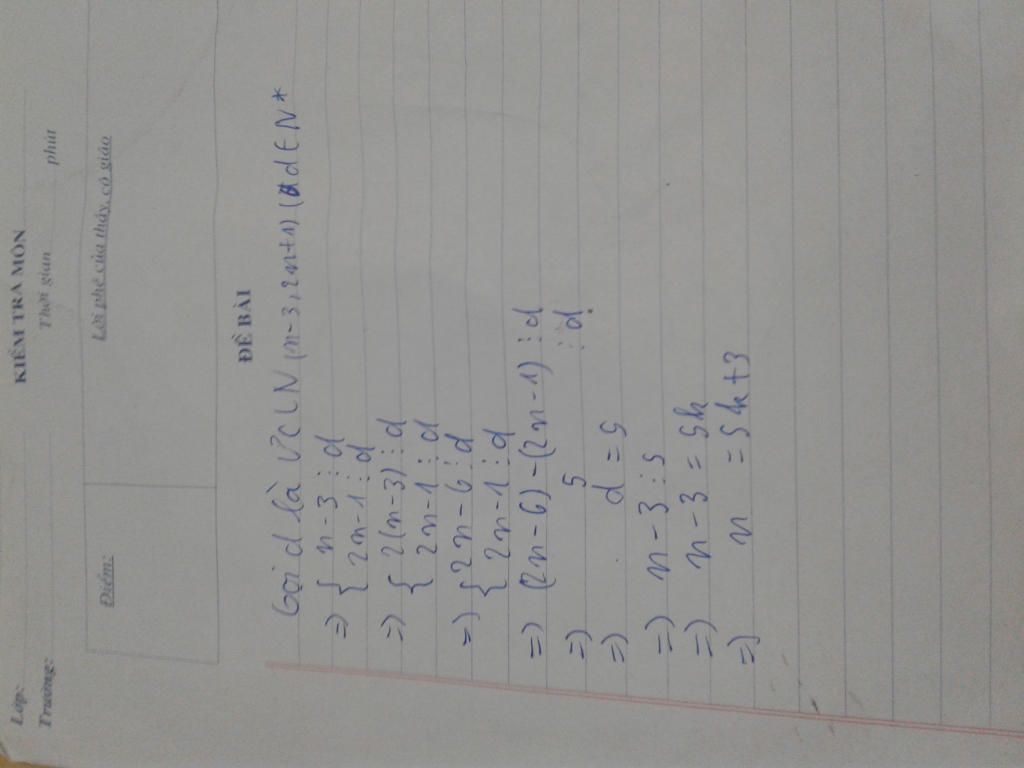 Lớp:
Trường:
KIỂM TRA MÔN
Thời gian phút
Điểm:
Lời phê của thầy, cô giáo
ĐỀ BÀI
Gọi d là ƯCLN (n-3, 2n+1) (d∈N*
=> { n-3 ⋮ d
{ 2n-1 ⋮ d
=> { 2(n-3) ⋮ d
{ 2n-1 ⋮ d
=> { 2n-6 ⋮ d
{ 2n-1 ⋮ d
=> (2n-6)-(2n-1) ⋮ d
=> 5 ⋮ d
=> d = 5
=> n-3 ⋮ 5
=> n-3 = 5k
=> n = 5k+3